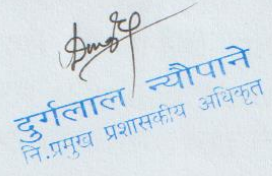 दुर्गलाल न्यौपाने
नि.प्रमुख प्रशासकीय अधिकृत